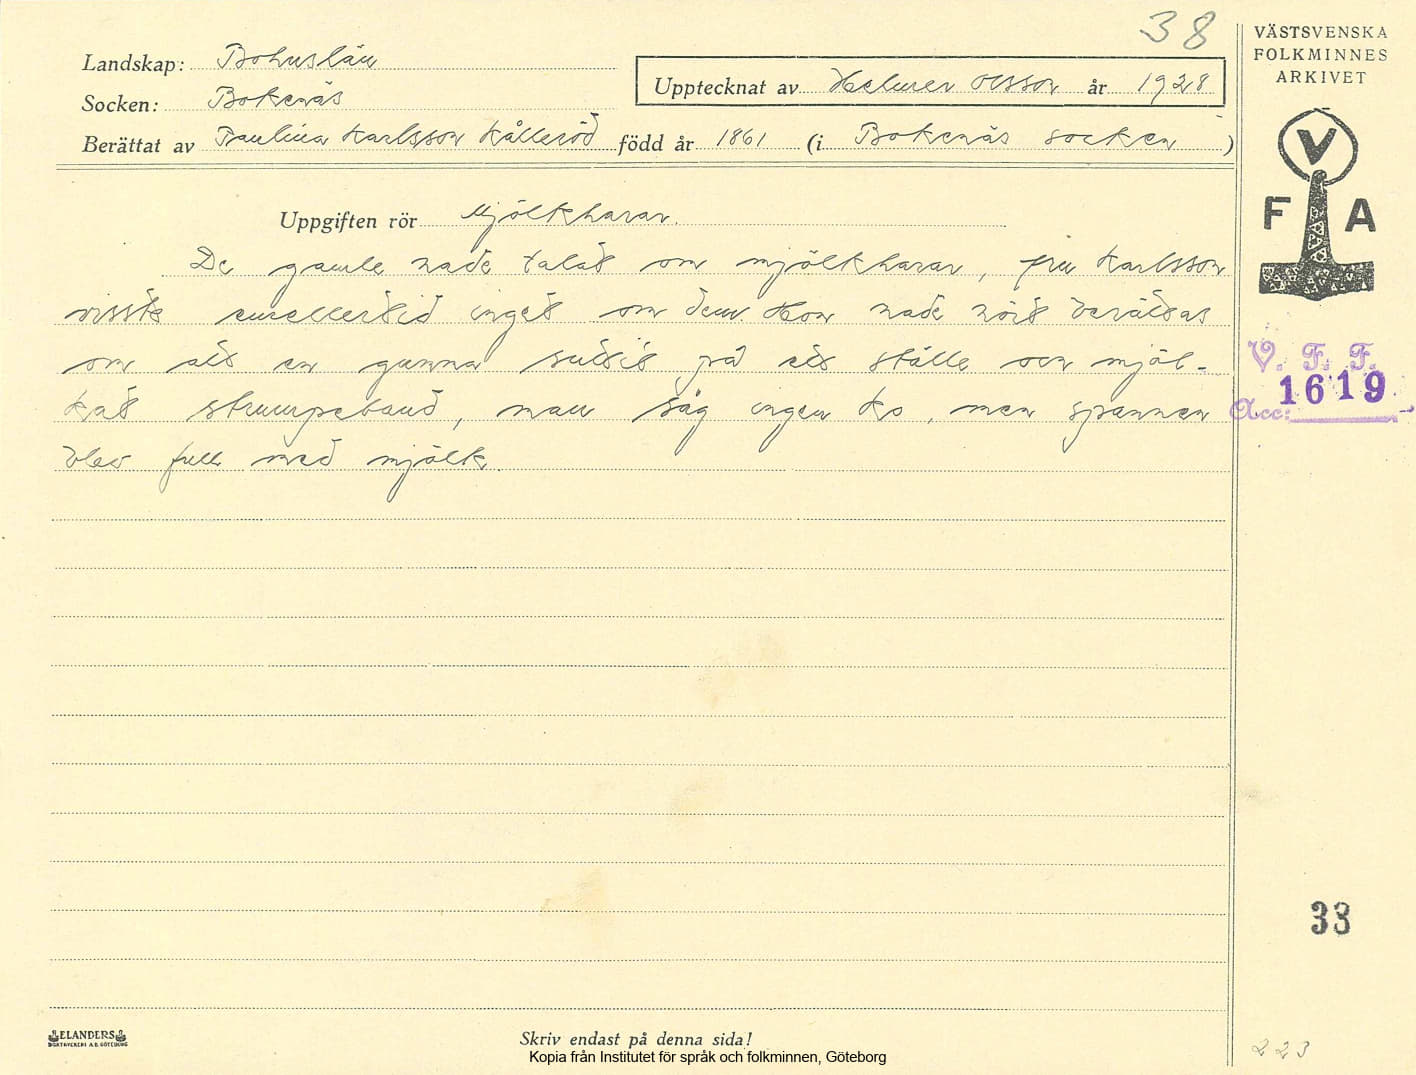 38
VÄSTSVENSKA
FOLKMINNES
ARKIVET
Landskap: Bohuslän
Socken: Bokenäs
Upptecknat av Helmer Olsson år 1928
Berättat av Paulina Karlsson Kålleröd född år 1861 (i Bokenäs socken)
V
F A
Uppgiften rör Mjölkharar.
De gamle hade talat om mjölkharar, fru Karlsson
visste emellertid inget om dem. Hon hade hört berättas
om att en gumma suttit på ett ställe och mjöl-
kat strumpeband, man såg ingen ko, men spannen
blev full med mjölk.
V. F. F.
1619
Acc:
33
ELANDERS
BOKTRYCKERI A.B. GÖTEBORG
Skriv endast på denna sida!
Kopia från Institutet för språk och folkminnen, Göteborg
223